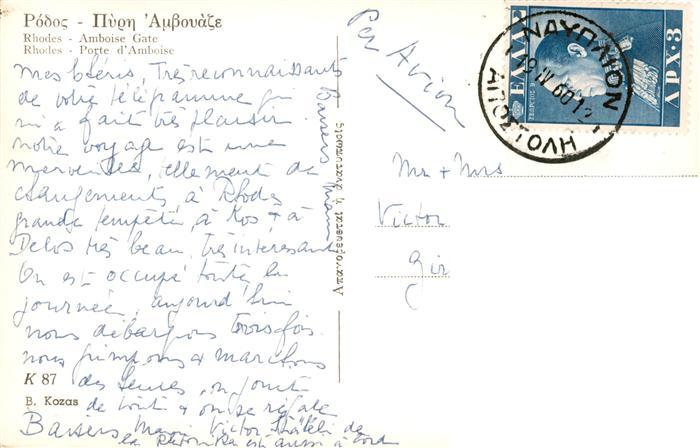 Ρόδος - Πύρη Ἀμβουάζε
Rhodes - Amboise Gate
Rhodes - Porte d'Amboise
mes chéris, Très reconnaissants
de votre télégramme qui
m'a fait très plaisir
notre voyage est une
merveille, tellement de
changements, à Rhodes
grande tempête, à Kos + à
Delos très beau, très intéressant
On est occupé toute la
journée, aujourd'hui
nous débarquons trois fois.
nous grimpons + marchons
des heures, on jouit
de tout + on se régale
Baisers Victor
est aussi à bord
Baisers
K 87
B. Kozas
Par Avion
Mr + Mrs
Victor
Gir
ΕΛΛΑΣ
ΔΡΧ·3
ΝΑΥΠΛΙΟΝ
ΑΠΟΣΤΟΛΗ